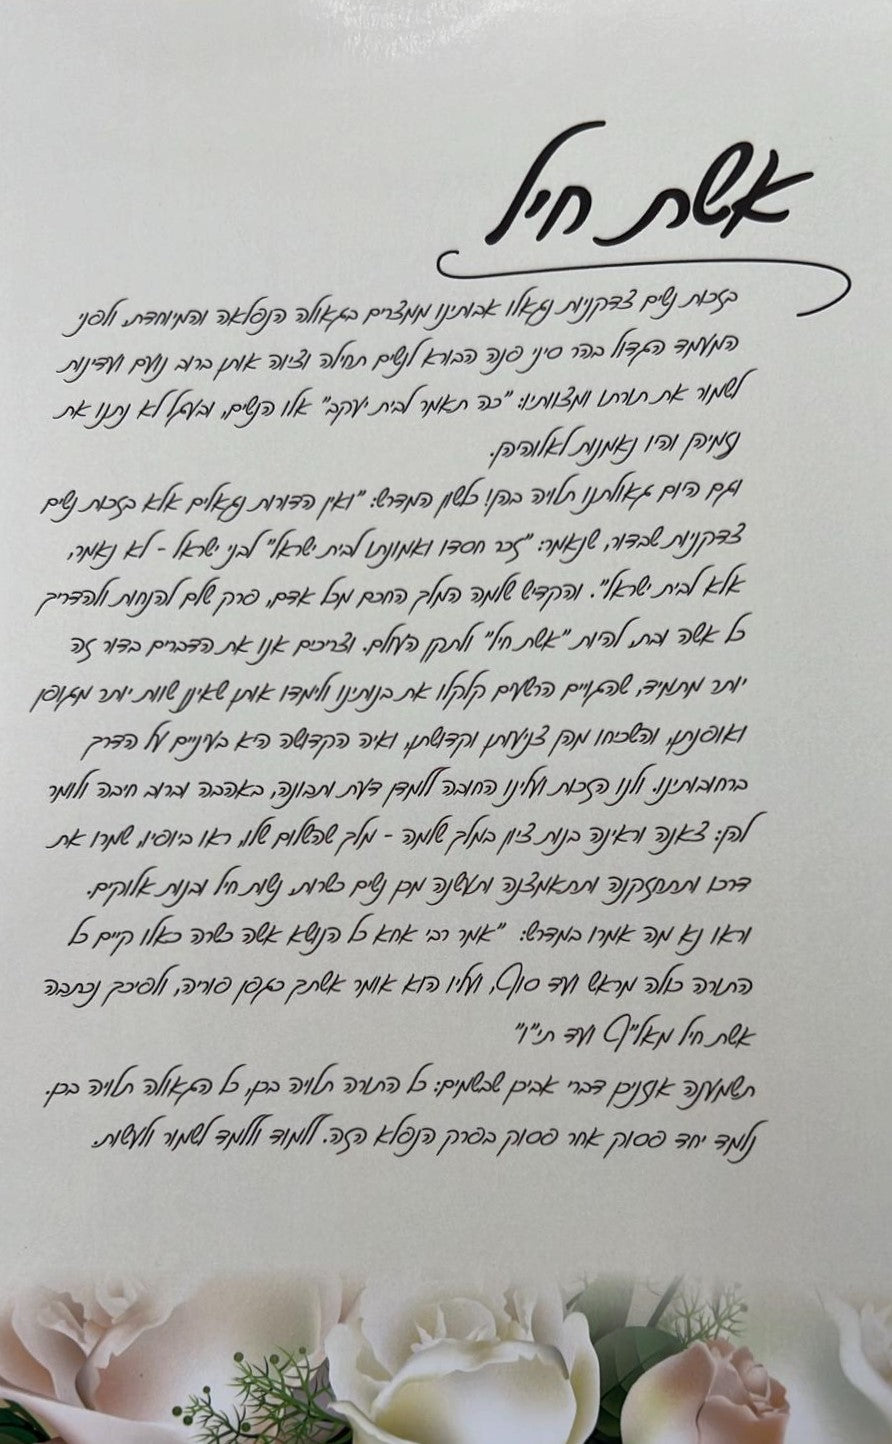 אשת חיל
בזכות נשים צדקניות נגאלו אבותינו ממצרים בגאולה הנפלאה והמיוחדת, ולפני
המעמד הגדול בהר סיני פנה הבורא לנשים תחילה וציוה אותן ברוב נועם ועדינות
לשמור את תורתו ומצוותיו: "כה תאמר לבית יעקב" אלו הנשים, ובעגל לא נתנו את
נזמיהן והיו נאמנות לאלוהיהן.
וגם היום גאולתנו תלויה בהן! כלשון המדרש: "ואין הדורות נגאלים אלא בזכות נשים
צדקניות שבדור, שנאמר: "זכר חסדו ואמונתו לבית ישראל" לבני ישראל - לא נאמר,
אלא לבית ישראל". והקדיש שלמה המלך החכם מכל אדם, פרק שלם להנחות ולהדריך
כל אשה ובת, להיות "אשת חיל" ולתקן העולם. וצריכים אנו את הדברים בדור זה
יותר מתמיד, שהגויים הרשעים קלקלו את בנותינו ולימדו אותן שאינן שוות יותר מגופן
ואופנתן, והשכיחו מהן צניעותן וקדושתן, ואיה הקדושה היא בעניים על הדרך
ברחובותינו. ולנו הזכות ועלינו החובה ללמדן דעת ותבונה, באהבה וברוב חיבה ולומר
להן: צאנה וראינה בנות ציון במלך שלמה - מלך שהשלום שלו, ראו ביופיו, שמרו את
דרכו ותתחזקנה ותתאמצנה ותעשנה מכן נשים כשרות, נשות חיל ובנות אלוקים.
וראו נא מה אמרו במדרש: "אמר רבי אחא כל הנושא אשה כשרה כאלו קיים כל
התורה כולה מראש ועד סוף, ועליו הוא אומר אשתך כגפן פוריה, ולפיכך נכתבה
אשת חיל מאל"ף ועד תי"ו"
תשמענה אוזניכן דברי אביכן שבשמים: כל התורה תלויה בכן, כל הגאולה תלויה בכן.
נלמד יחד פסוק אחר פסוק בפרק הנפלא הזה. ללמוד וללמד לשמור ולעשות.